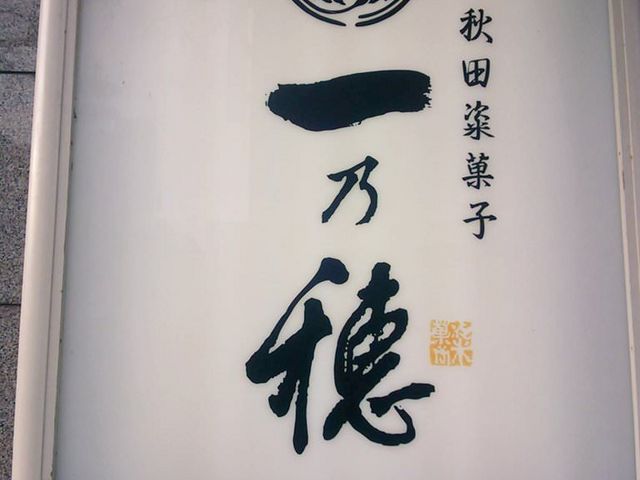 秋田粢菓子
一乃穂